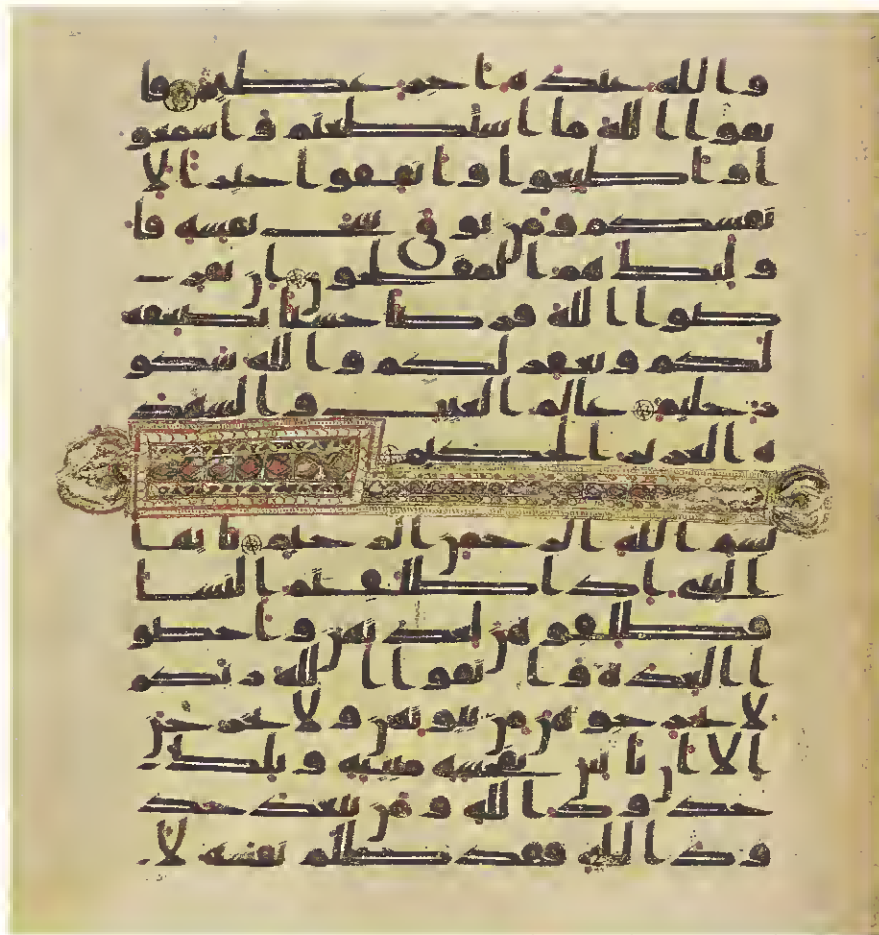 والله عنده اجر عظيم فا
تقوا الله ما استطعتم واسمعو
ا واطيعوا وانفقوا خيرا لا
نفسكم ومن يوق شح نفسه فا
ولئك هم المفلحون ان تقر
ضوا الله قرضا حسنا يضعفه
لكم ويغفر لكم والله شكو
ر حليم عالم الغيب والشهد
ة العزيز الحكيم
بسم الله الرحمن الرحيم يايها
النبي اذا طلقتم النسا
فطلقوهن لعدتهن واحصو
ا العدة واتقوا الله ربكم
لا تخرجوهن من بيوتهن ولا يخرجن
الا ان ياتين بفحشة مبينة وتلك
حدود الله ومن يتعد حد
ود الله فقد ظلم نفسه لا